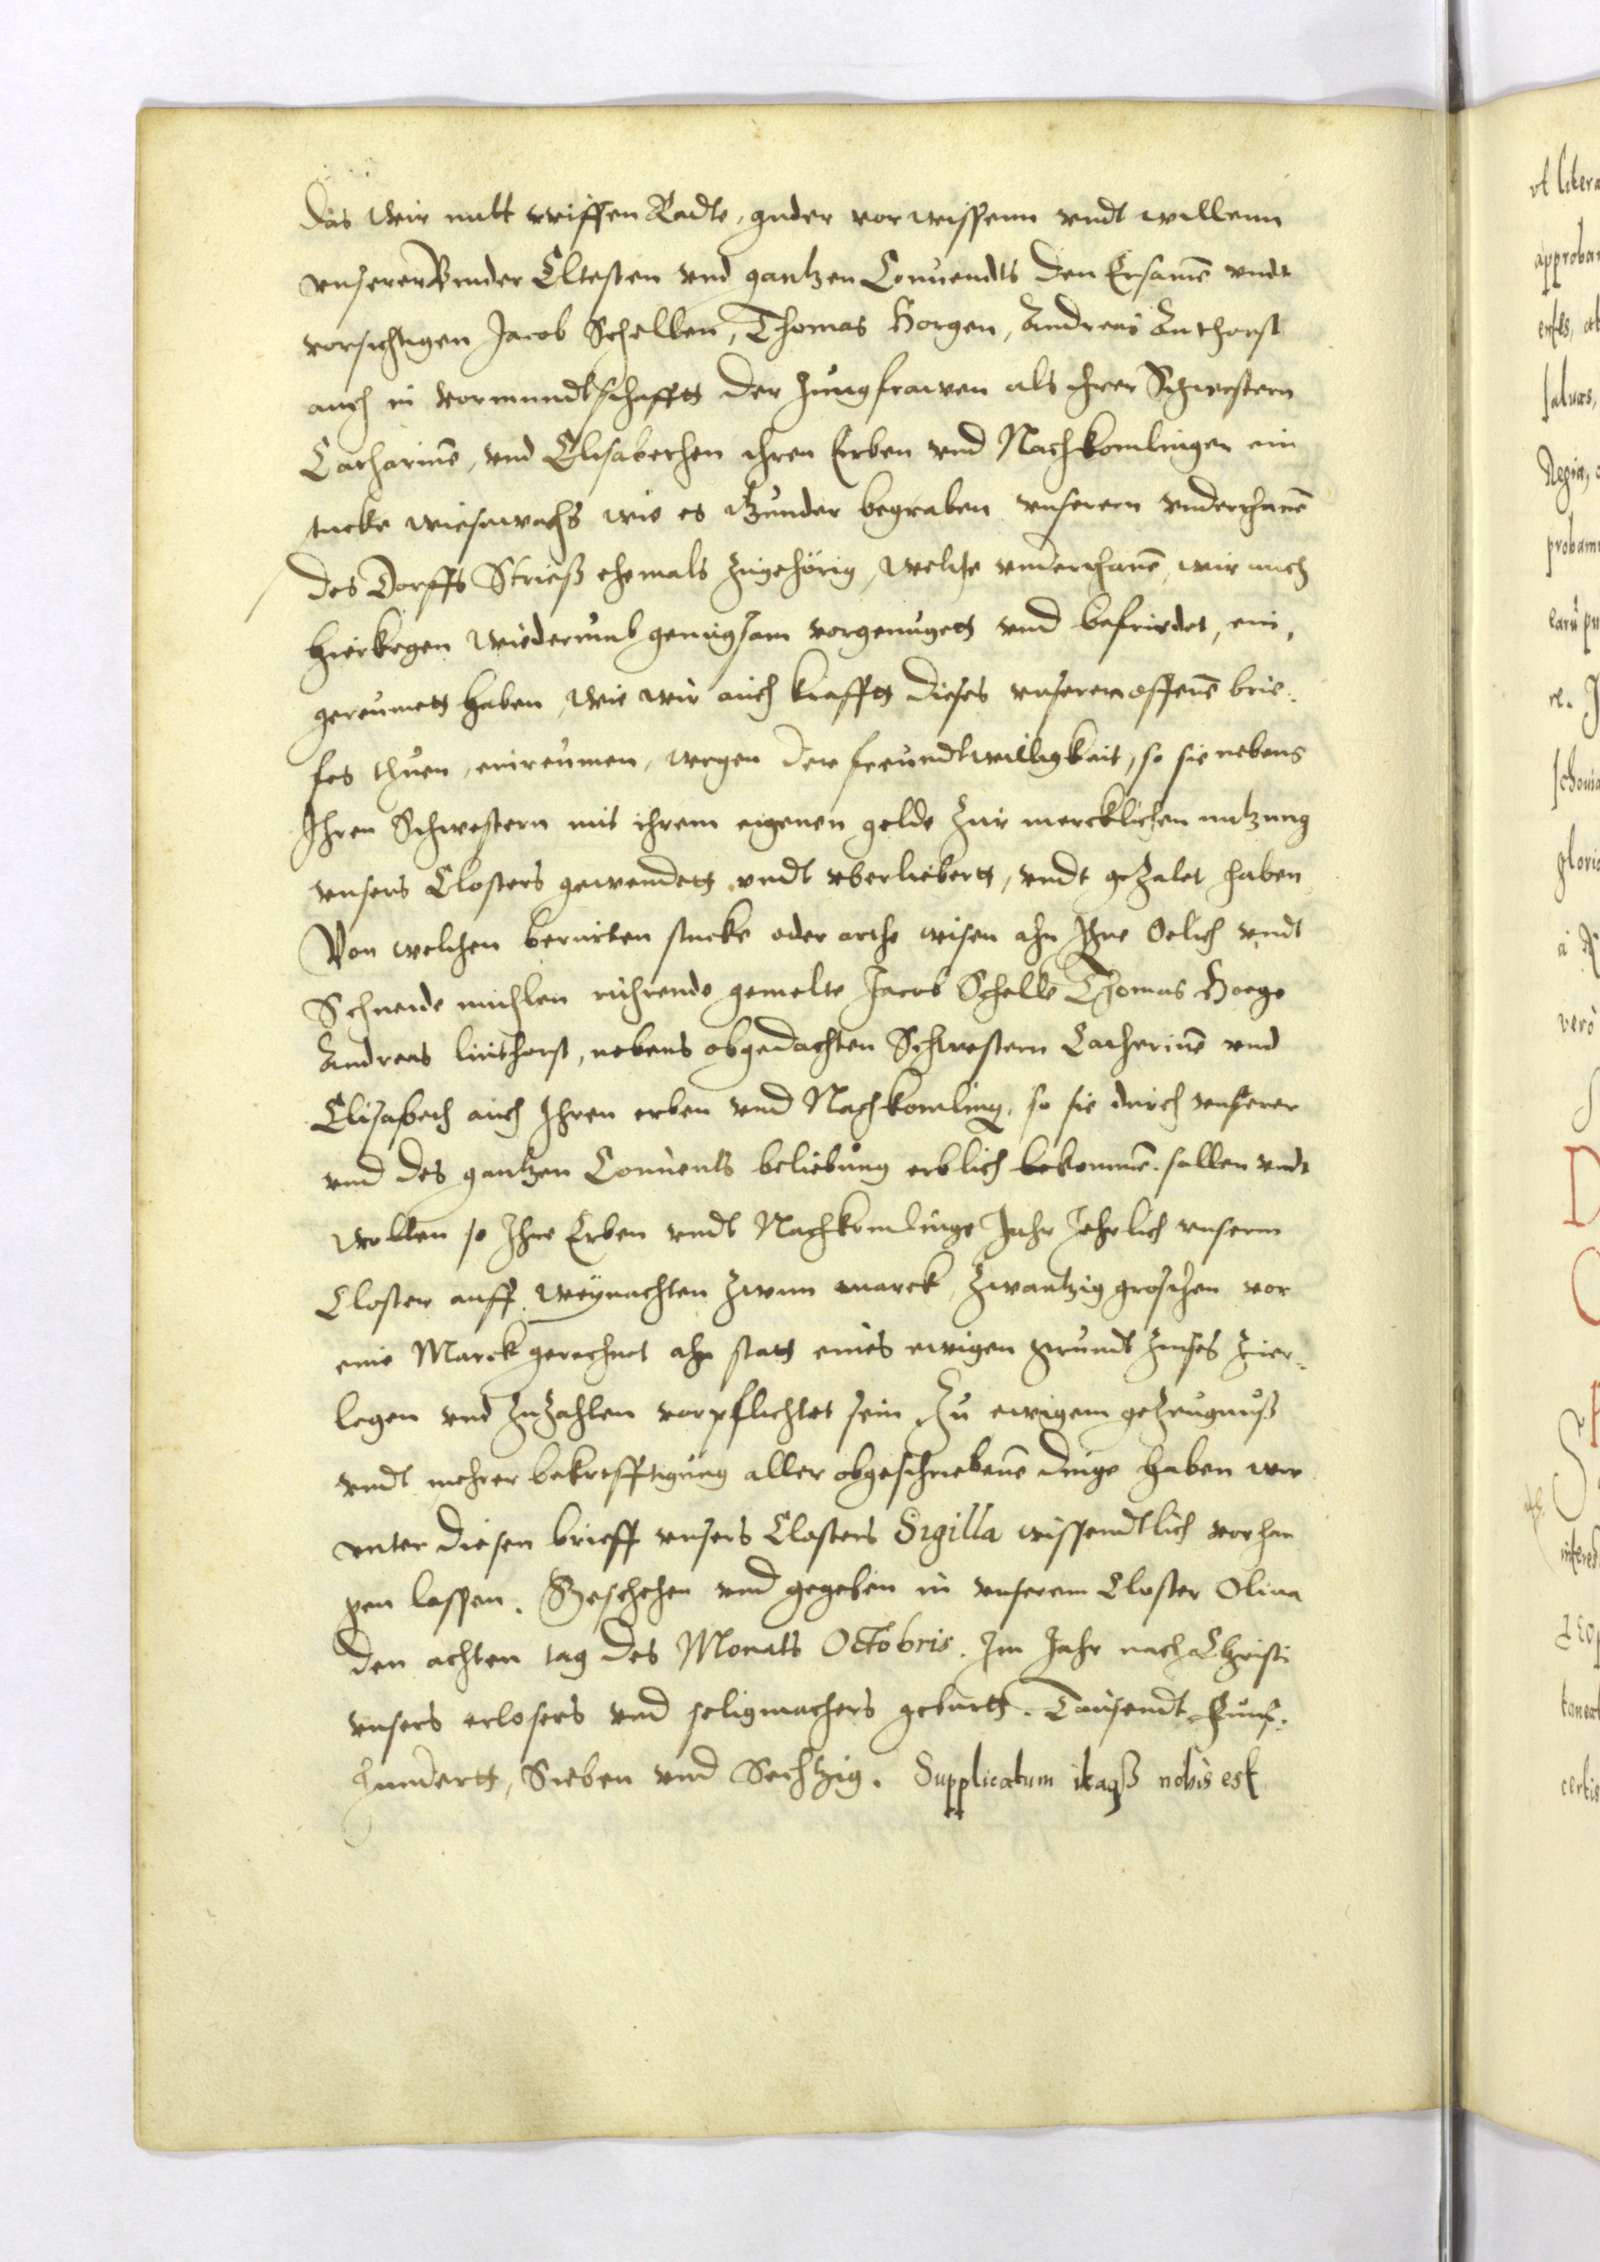 Das Wir mitt reiffen Radte, guder vorwissenn vndt willenn
vnserer Bruder Eltesten vnd gantzen Conuendts den Ersamē vndt
vorsichtigen Jacob Schellen, Thomas Horgen, Andreas Linthorst
auch in vormundtschafftt der Jungfrawen als ihrer Schwestern
Catharinē, vnd Elisabethen ihren Erben vnd Nachkomlingen ein
stucke wiesewachs wie es itzunder begraben vnserern vnderthanē
des Dorffs Strieß ehemals zugehörig, welche vnderthanē, wir auch
hierkegen wiederumb genugsam vorgenugett vnd befridet, ein,
gereumett haben, wie wir auch krafftt dieses vnseren offenē brie-
fes thuen, einreumen, wegen der freundtwilligkeit, so sie nebens
Ihren Schwestern mit ihrem eigenen gelde zur mercklichen nutzung
vnsers Closters gewendett vndt vberliebertt, vndt gezalet haben
Von welchen berurten stucke oder orthe wisen ahn Ihre Oelich vndt
Schneide muhlen rührende gemelte Jacob Schelle Thomas Horge
Andreas linthorst, nebens obgedachten Schwestern Catherinē vnd
Elisabeth auch Ihren erben vnd Nachkomling, so sie durch vnserer
vnd des gantzen Conuents beliebung erblich bekommē. sollen vndt
wollen so Ihre Erben vndt Nachkomlinge Jahr Jehrlich vnserm
Closter auff Weynachten zwum marck, zwantzig groschen vor
eine Marck gerechnet ahn statt eines ewigen grundt zinses zuer-
legen vnd zuzahlen vorpflichtet sein. Zu ewigem gezeugnuß
vndt mehrer bekrefftigung aller obgeschriebenē dinge haben wir
vnter diesen brieff vnsers Closters Sigilla wissendtlich vorhan
gen lassen. Geschehen vnd gegeben in vnserem Closter Oliua
den achten tag des Monats Octobris. Im Jahr nach Christi
vnsers erlosers vnd seligmachers geburtt. Tausendt Funf-
hundertt, Sieben vnd Sechtzig. Supplicatum itaqß nobis est